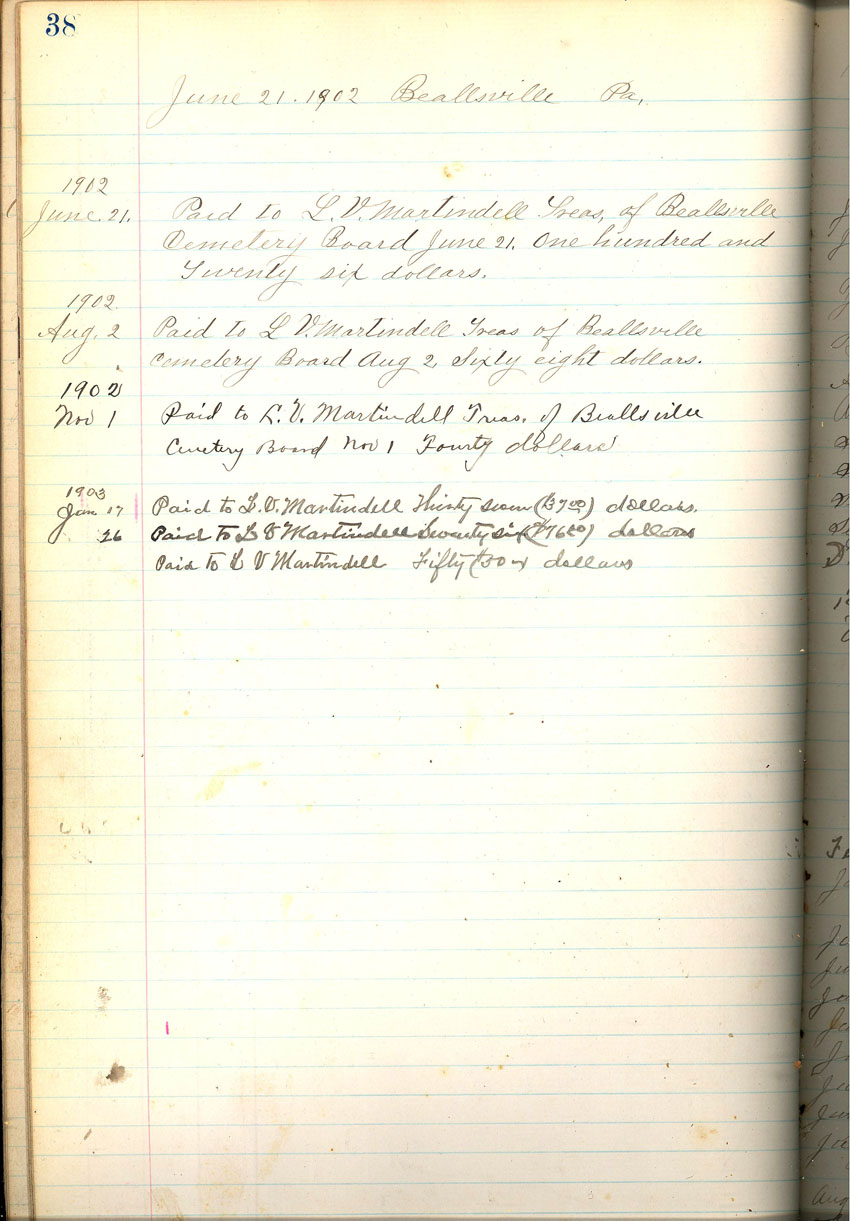 38
June 21. 1902 Beallsville Pa,
1902
June. 21. Paid to L. V. Martindell Treas, of Beallsville
Cemetery Board June 21. One hundred and
Twenty six dollars.
1902
Aug. 2 Paid to L V. Martindell Treas of Beallsville
Cemetery Board Aug 2, Sixty eight dollars.
1902
Nov 1 Paid to L. V. Martindell Treas. of Beallsville
Cemetery Board Nov 1 Fourty dollars
1903
Jan 17 Paid to L. V. Martindell Thirty seven ($3700) dollars.
26 Paid to L V Martindell six dollars
Paid to L V Martindell Fifty dollars